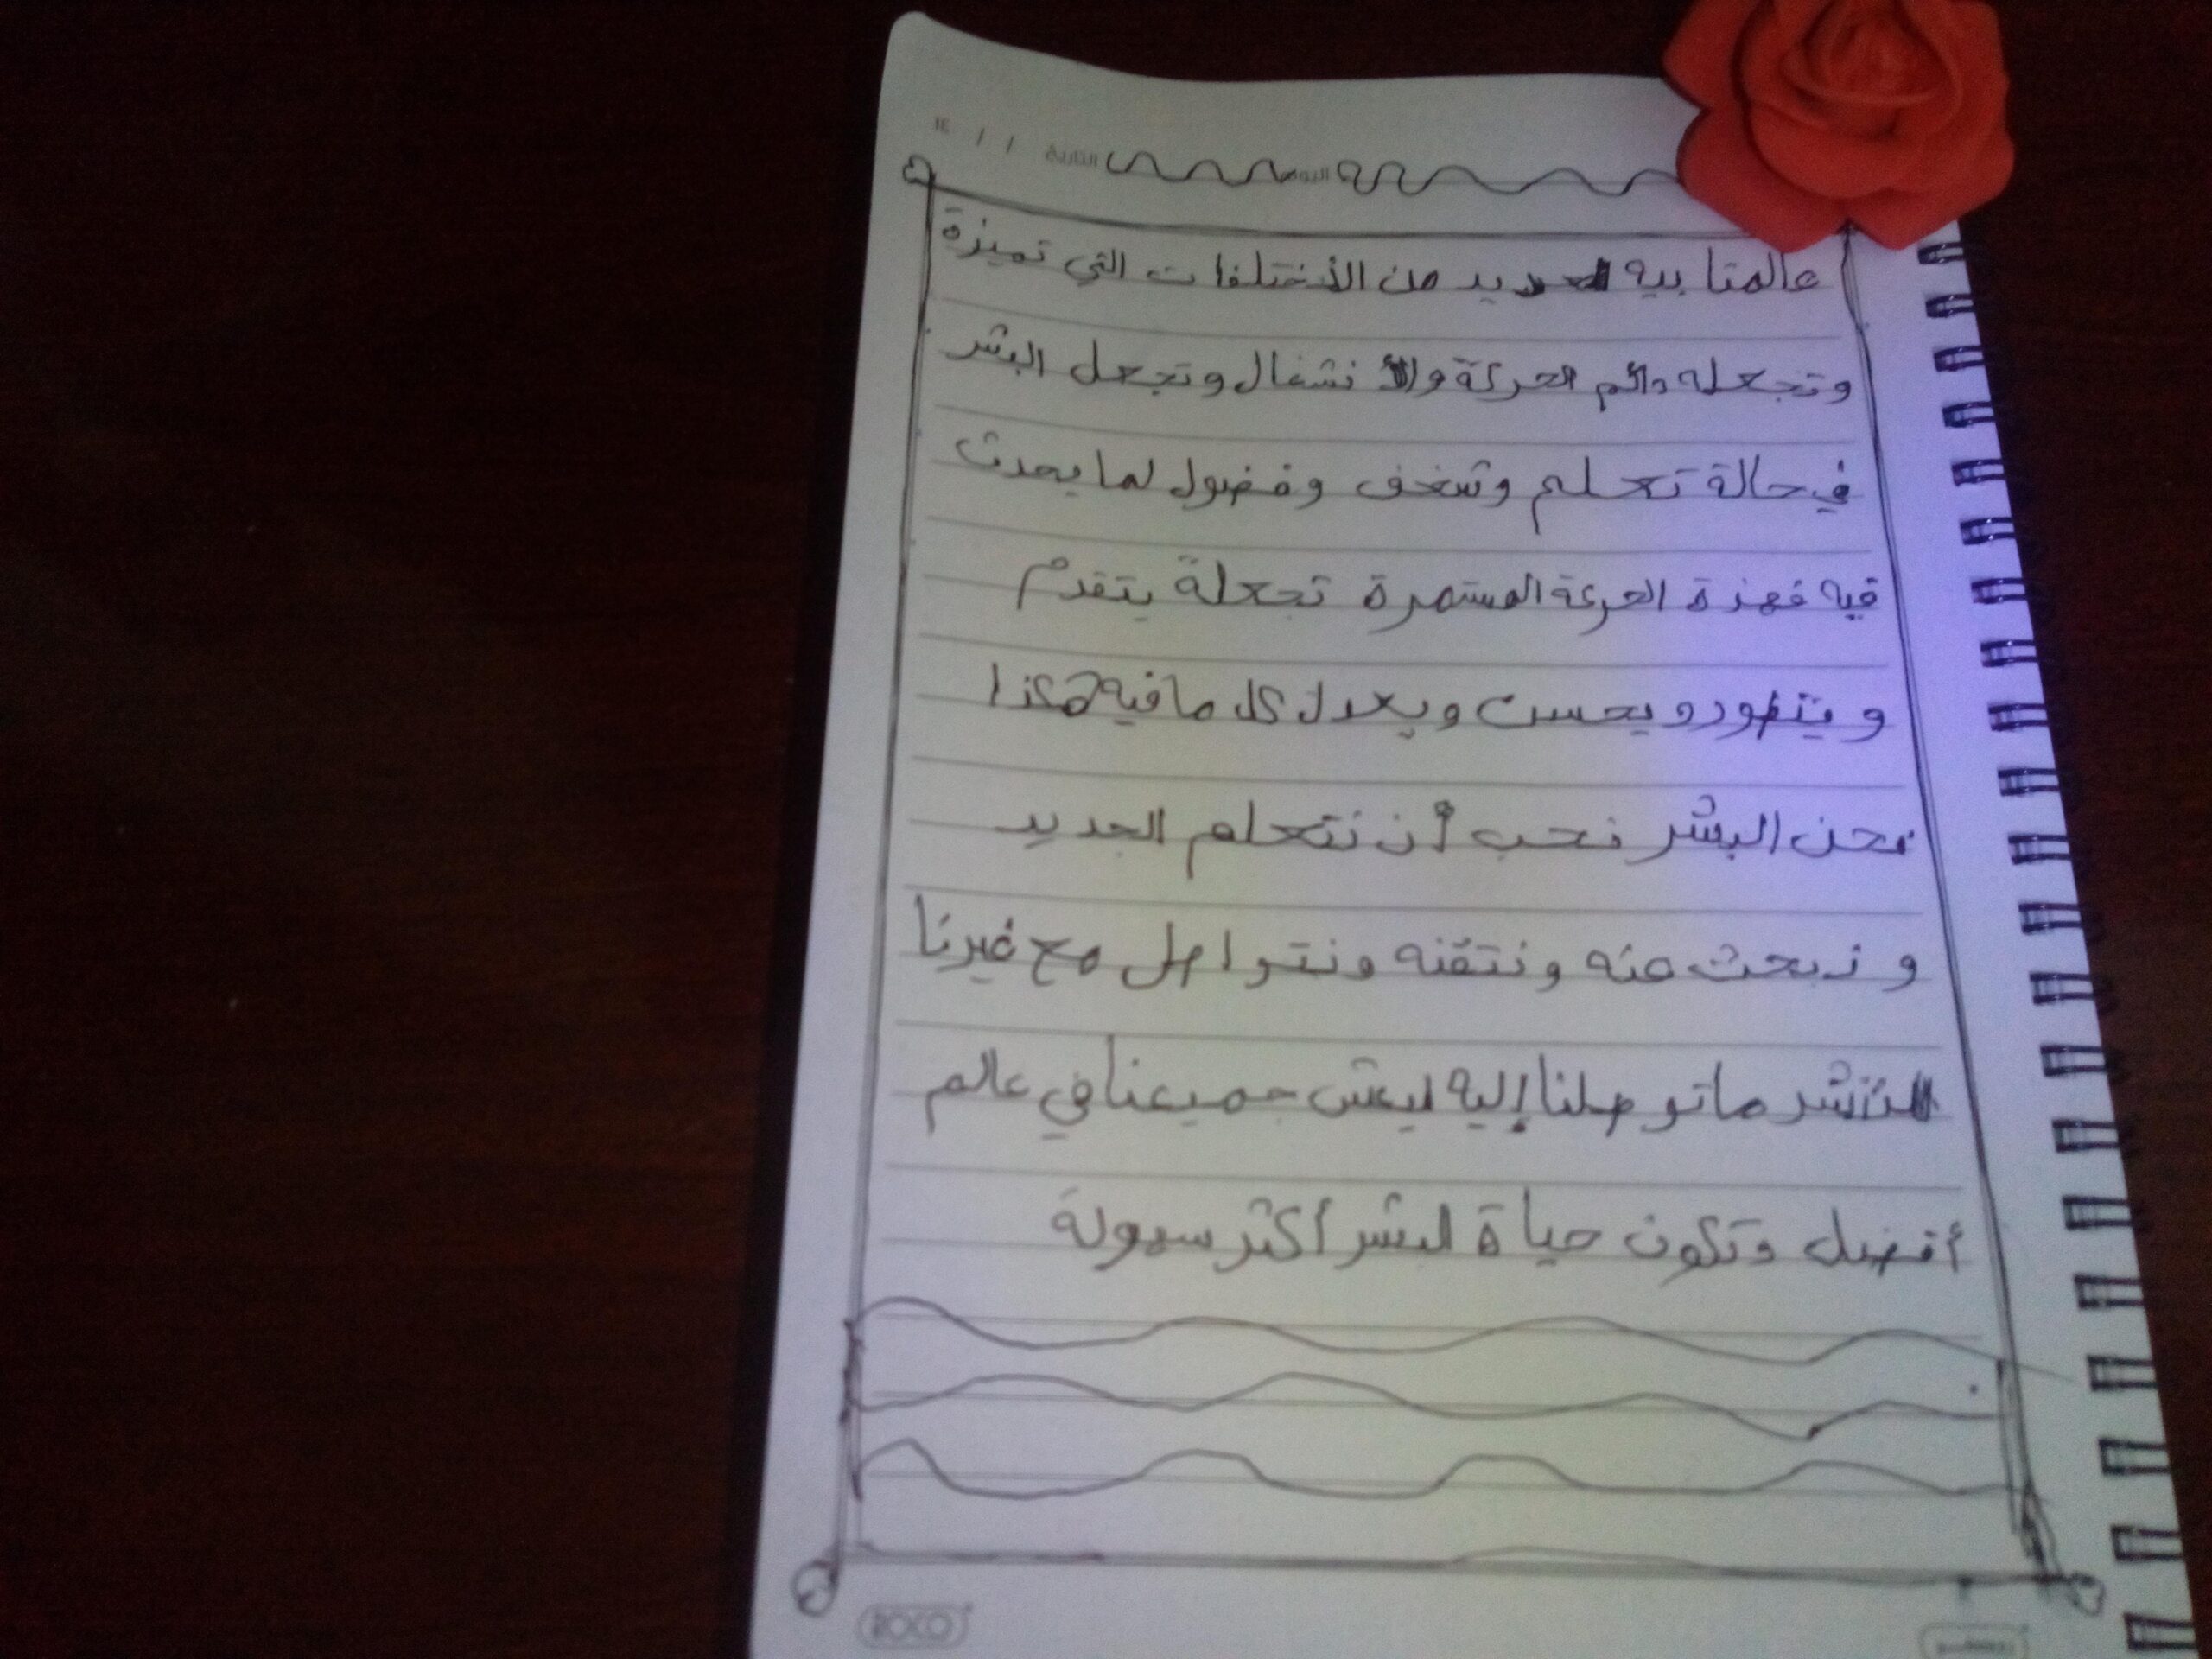 التاريخ / / ١٤
عالمنا بيه العديد من الأختلفات التي تميزة
وتجعله دائم الحركة والأنشغال وتجعل البشر
في حالة تعلم وشغف وفضول لما يحدث
فيه فهذة الحركة المستمرة تجعلة يتقدم
ويتطور ويحسن ويعدل كل ما فيه هكذا
نحن البشر نحب أن نتعلم الجديد
ونبحث عنه ونتقنه ونتواصل مع غيرنا
لننشر ما توصلنا إليه ليعش جميعنا في عالم
أفضل وتكون حياة البشر أكثر سهولة
ROCO